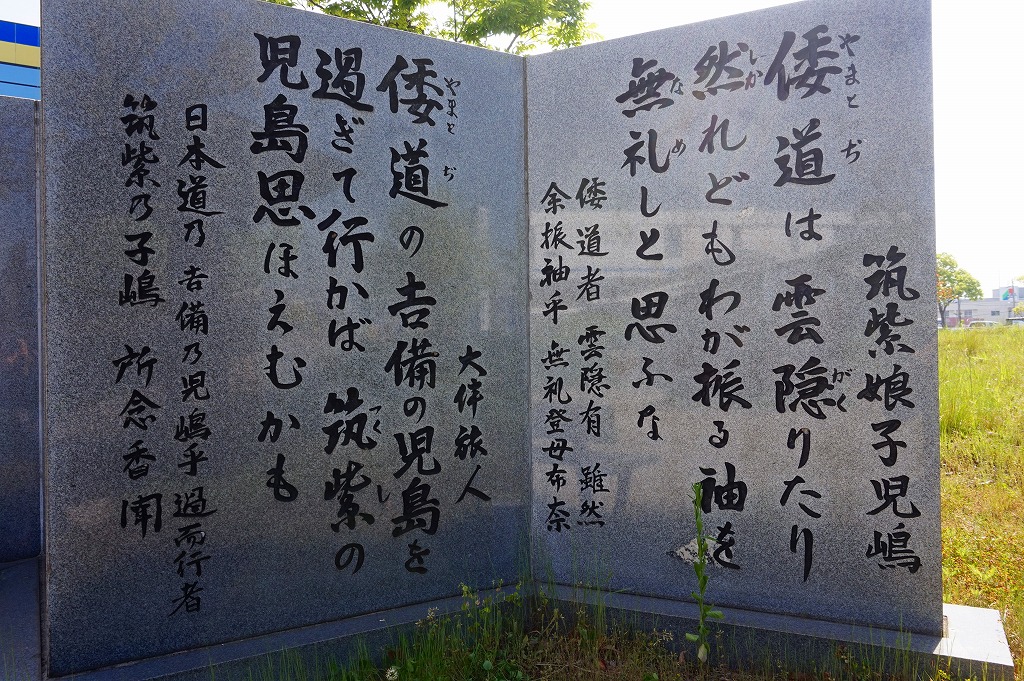 筑紫娘子児嶋
倭道は雲隠りたり
やまとぢ
がく
然れどもわが振る袖を
しか
無礼しと思ふな
なめ
倭道者 雲隠有 雖然
余振袖乎 無礼登母布奈
大伴旅人
倭道の吉備の児島を
やまとぢ
過ぎて行かば 筑紫の
つくし
児島思ほえむかも
日本道乃 吉備乃児嶋乎 過而行者
筑紫乃子嶋 所念香聞